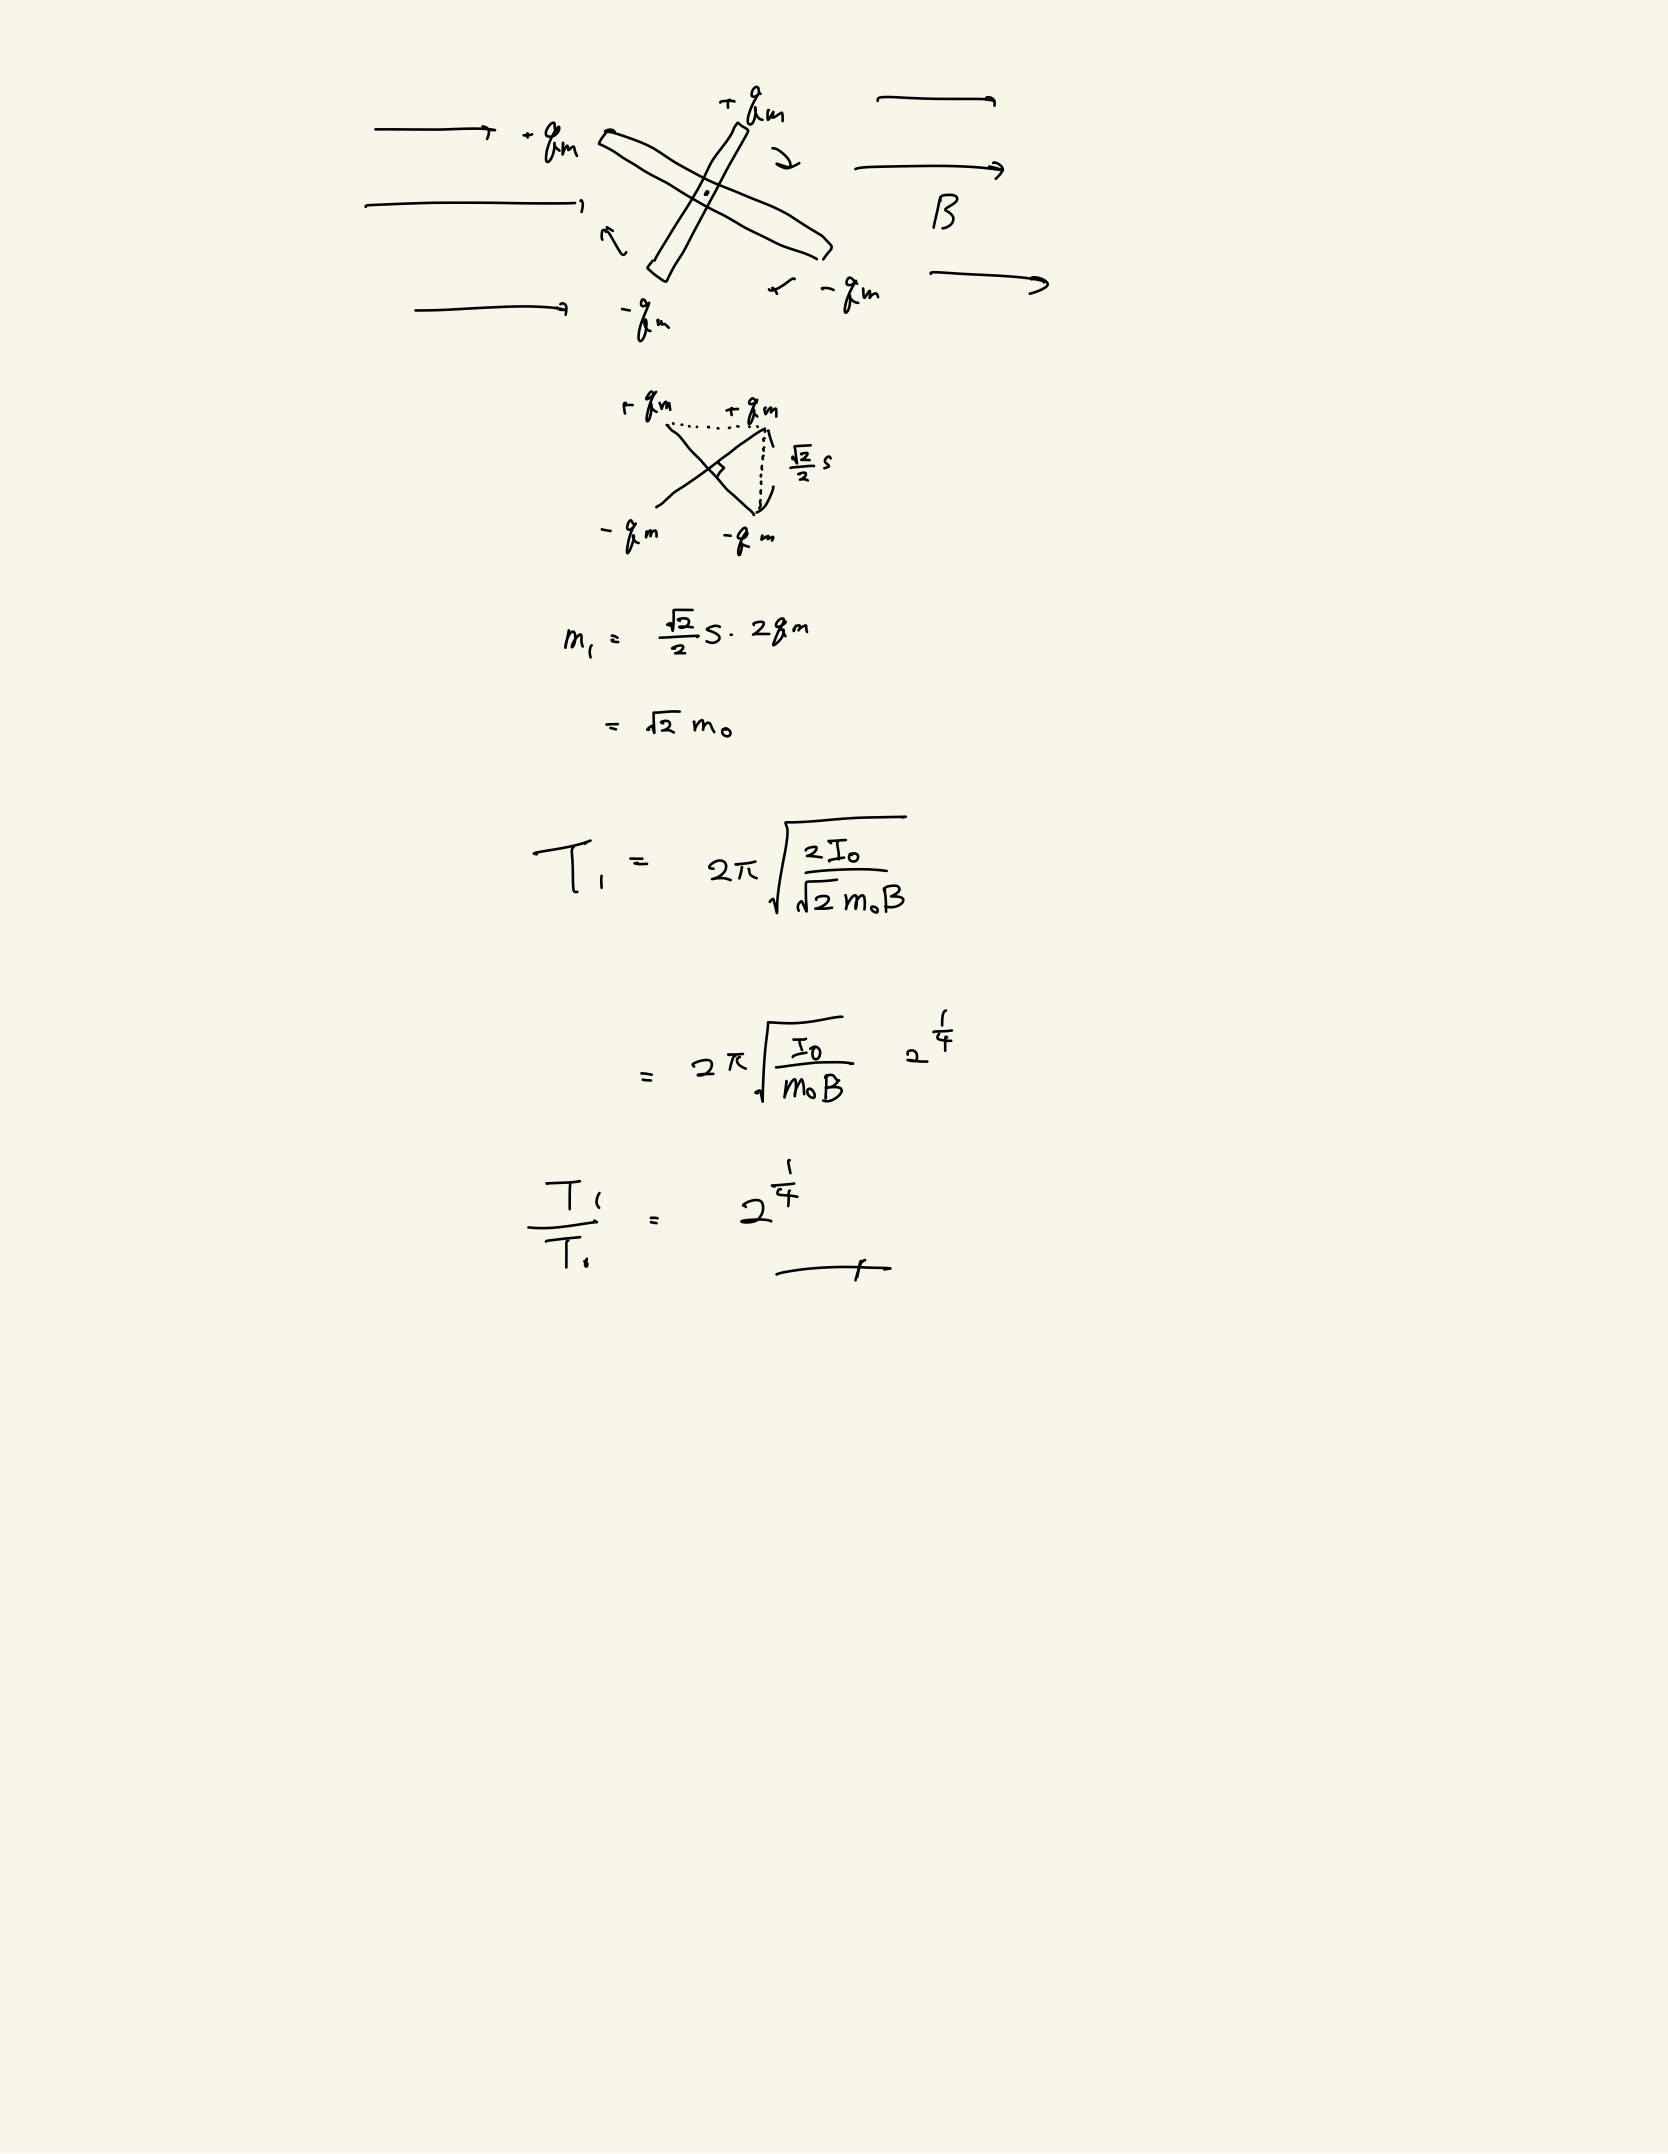 + qm
+ qm
B
- qm
- qm
+ qm + qm
√2/2 s
- qm - qm
m₁ = √2/2 s · 2qm
= √2 m₀
T₁ = 2π √(2I₀ / √2 m₀B)
= 2π √(I₀ / m₀B) 2^(1/4)
T₁/T₀ = 2^(1/4)